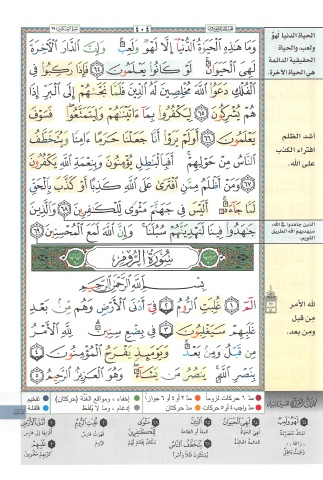 ٤٠٤
وَمَا هَٰذِهِ الْحَيَوٰةُ الدُّنْيَآ إِلَّا لَهْوٌ وَلَعِبٌ وَإِنَّ الدَّارَ الْءَاخِرَةَ
لَهِىَ الْحَيَوَانُ لَوْ كَانُوا۟ يَعْلَمُونَ ٦٤ فَإِذَا رَكِبُوا۟ فِى
الْفُلْكِ دَعَوُا۟ اللَّهَ مُخْلِصِينَ لَهُ الدِّينَ فَلَمَّا نَجَّىٰهُمْ إِلَى الْبَرِّ إِذَا
هُمْ يُشْرِكُونَ ٦٥ لِيَكْفُرُوا۟ بِمَآ ءَاتَيْنَٰهُمْ وَلِيَتَمَتَّعُوا۟ فَسَوْفَ
يَعْلَمُونَ ٦٦ أَوَلَمْ يَرَوْا۟ أَنَّا جَعَلْنَا حَرَمًا ءَامِنًا وَيُتَخَطَّفُ
النَّاسُ مِنْ حَوْلِهِمْ أَفَبِالْبَٰطِلِ يُؤْمِنُونَ وَبِنِعْمَةِ اللَّهِ يَكْفُرُونَ
٦٧ وَمَنْ أَظْلَمُ مِمَّنِ افْتَرَىٰ عَلَى اللَّهِ كَذِبًا أَوْ كَذَّبَ بِالْحَقِّ
لَمَّا جَآءَهُۥٓ أَلَيْسَ فِى جَهَنَّمَ مَثْوًى لِّلْكَٰفِرِينَ ٦٨ وَالَّذِينَ
جَٰهَدُوا۟ فِينَا لَنَهْدِيَنَّهُمْ سُبُلَنَا وَإِنَّ اللَّهَ لَمَعَ الْمُحْسِنِينَ ٦٩
سُورَةُ الرُّومِ
بِسْمِ اللَّهِ الرَّحْمَٰنِ الرَّحِيمِ
الٓمٓ ١ غُلِبَتِ الرُّومُ ٢ فِىٓ أَدْنَى الْأَرْضِ وَهُم مِّنۢ بَعْدِ
غَلَبِهِمْ سَيَغْلِبُونَ ٣ فِى بِضْعِ سِنِينَ لِلَّهِ الْأَمْرُ
مِن قَبْلُ وَمِنۢ بَعْدُ وَيَوْمَئِذٍ يَفْرَحُ الْمُؤْمِنُونَ ٤
بِنَصْرِ اللَّهِ يَنصُرُ مَن يَشَآءُ وَهُوَ الْعَزِيزُ الرَّحِيمُ ٥
الحياة الدنيا لهو
ولعب، والحياة
الحقيقية الدائمة
هي الحياة الآخرة.
أشد الظلم
افتراء الكذب
على الله.
الذين جاهدوا في الله،
سيهديهم الله الطريق
القويم.
لله الأمر
من قبل
ومن بعد.
مد ٦ حركات لزوما
مد ٢ أو ٤ أو ٦ جوازاً
إخفاء، ومواقع الغُنَّة (حركتان)
تفخيم
مد واجب ٤ أو ٥ حركات
مد حركتان
إدغام، وما لا يُلفظ
قلقلة